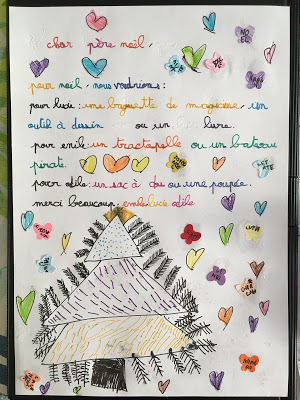 cher père noël,
pour noël, nous voudrions:
pour lucie: une baguette de magicienne, un
outil à dessin ou un livre.
pour emile: un tractopelle ou un bateau
pirate.
pour odile: un sac à dos ou une poupée.
merci beaucoup. emile lucie odile
NO
EL